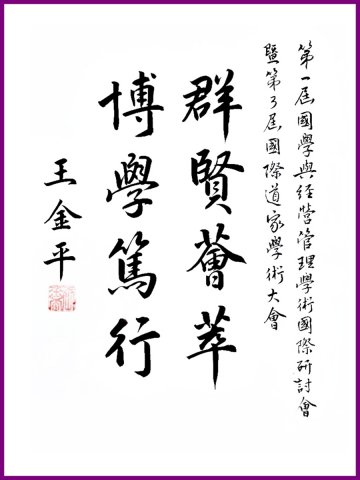 第一屆國學與經營管理學術國際研討會
暨第3屆國際道家學術大會
群賢薈萃
博學篤行
王金平